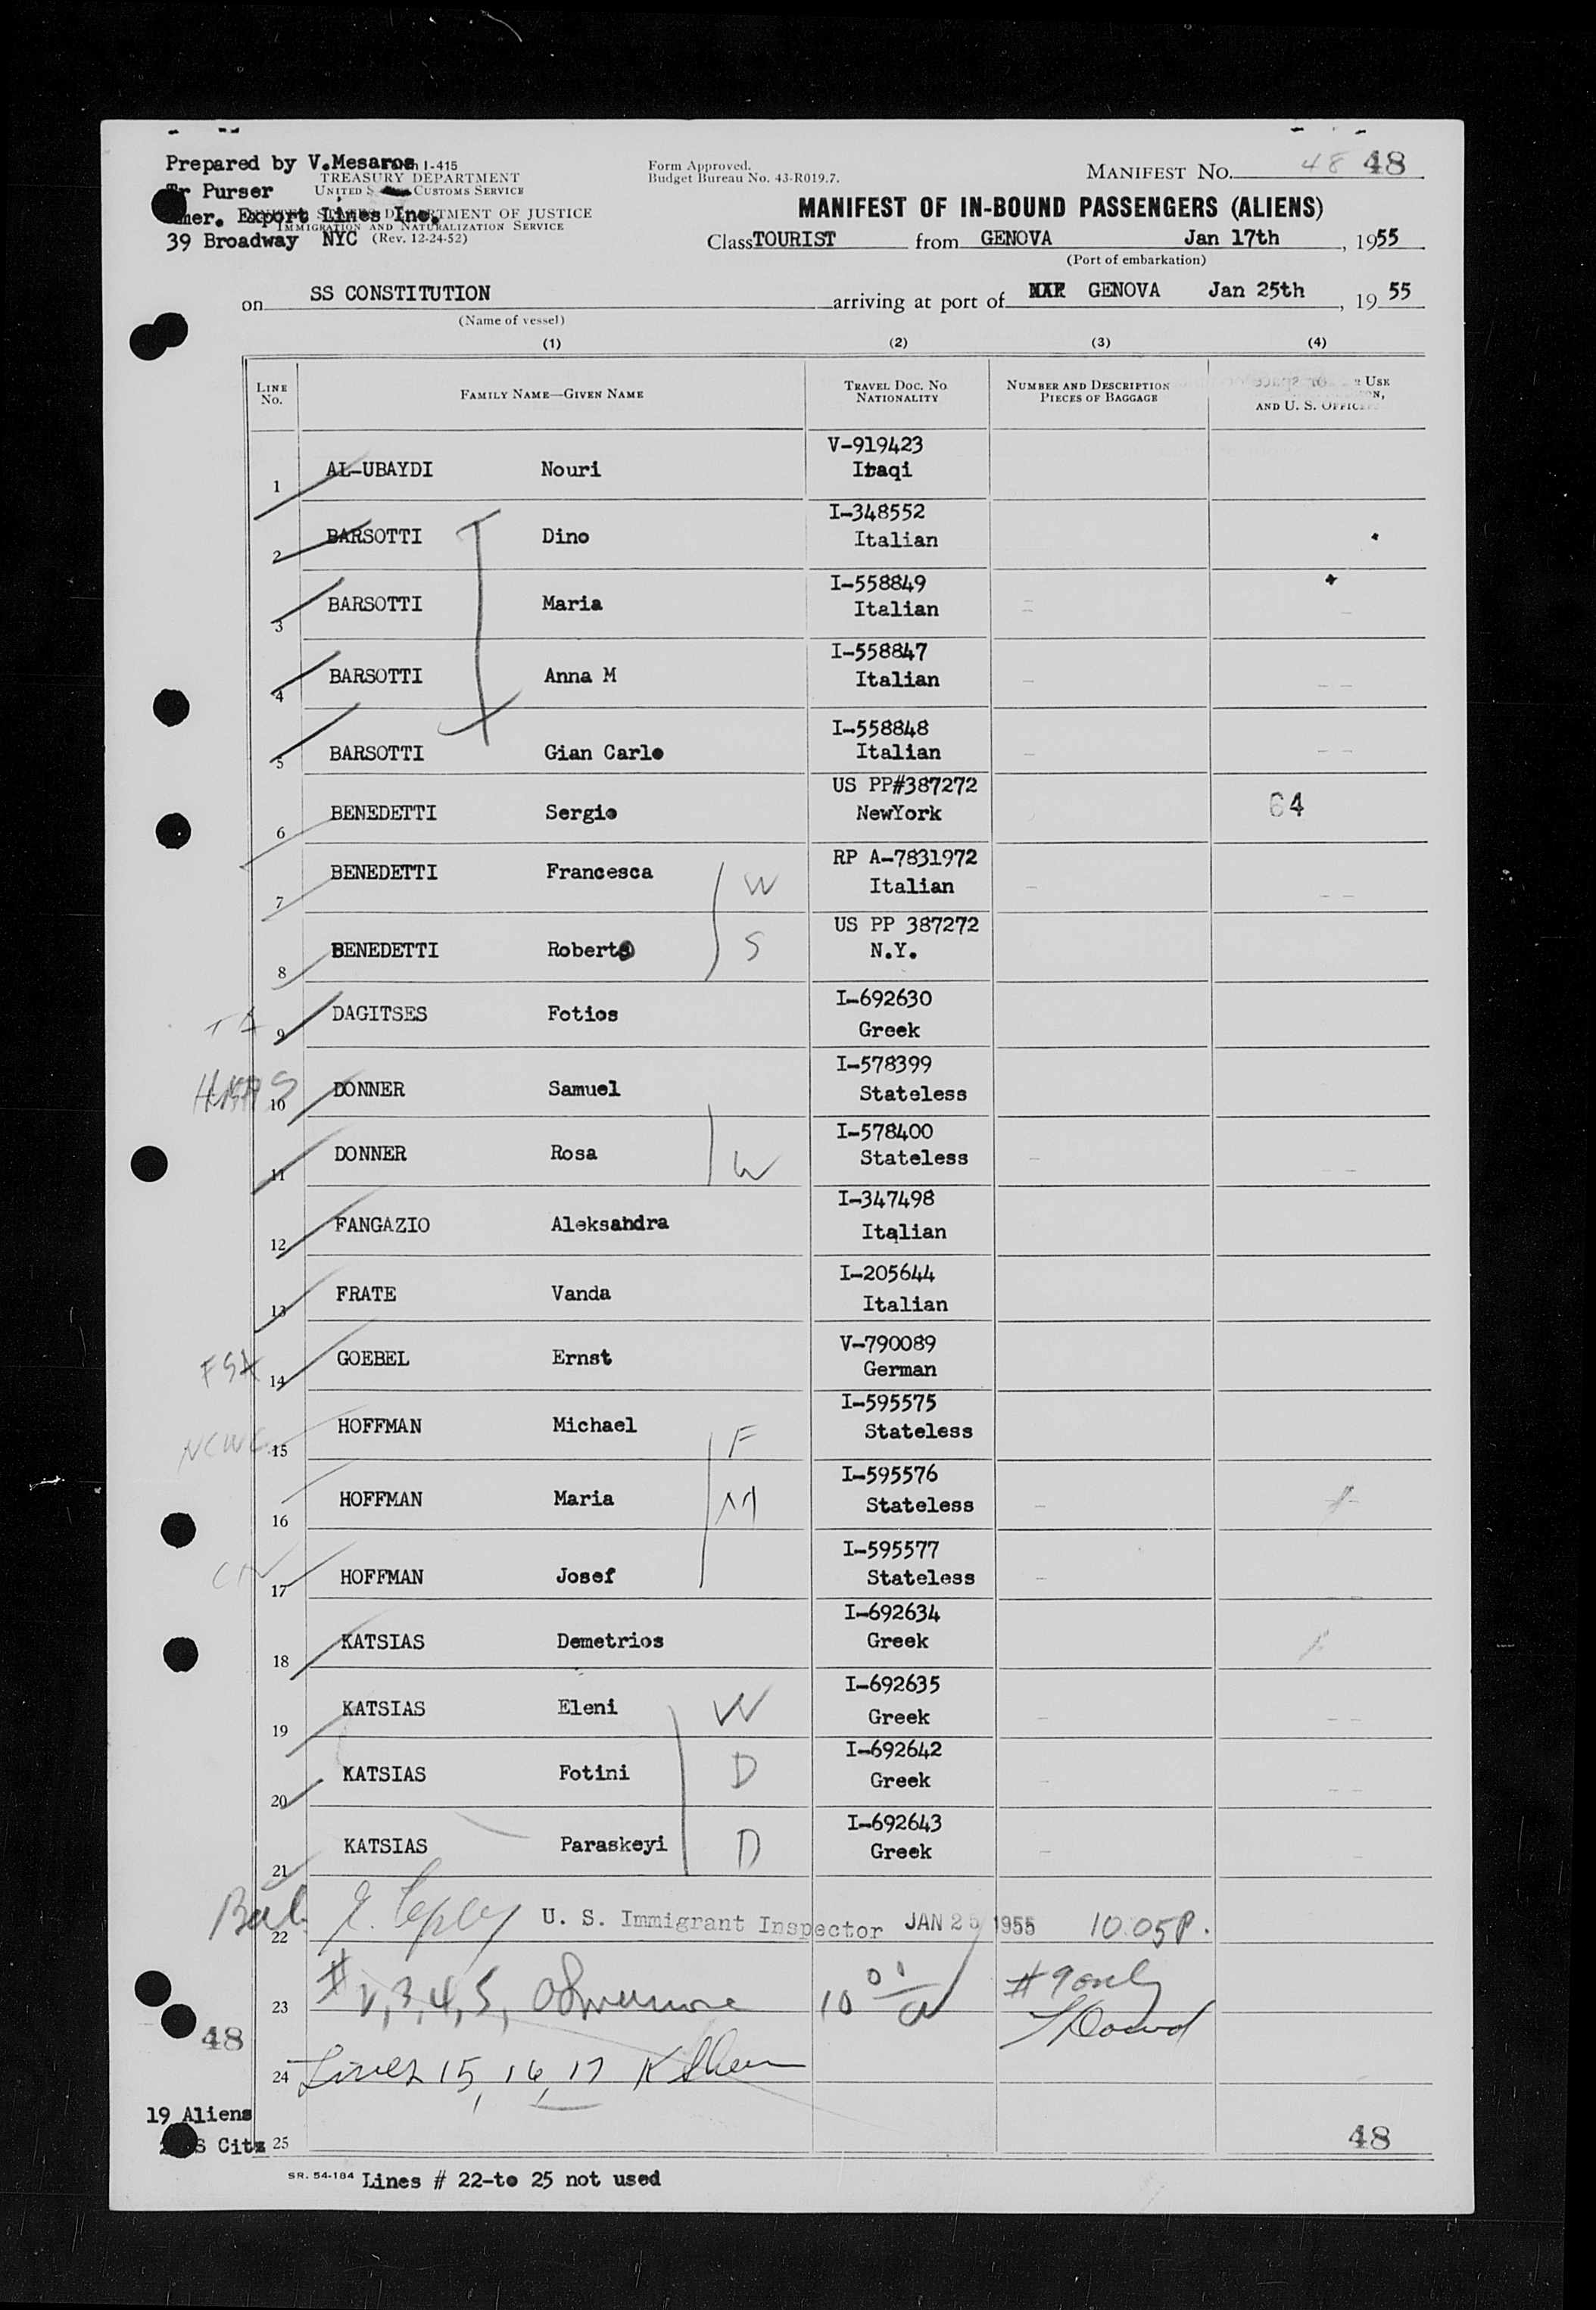 Prepared by V.Mesaros 1-415
TREASURY DEPARTMENT
Purser UNITED S CUSTOMS SERVICE
mer. Export Lines Inc. DEPARTMENT OF JUSTICE
IMMIGRATION AND NATURALIZATION SERVICE
39 Broadway NYC (Rev. 12-24-52)
Form Approved.
Budget Bureau No. 43-R019.7.
MANIFEST NO. 48 48
MANIFEST OF IN-BOUND PASSENGERS (ALIENS)
Class TOURIST from GENOVA Jan 17th, 1955
(Port of embarkation)
on SS CONSTITUTION arriving at port of GENOVA Jan 25th, 1955
(Name of vessel)
(1) (2) (3) (4)
LINE NO. FAMILY NAME—GIVEN NAME TRAVEL DOC. NO. NATIONALITY NUMBER AND DESCRIPTION PIECES OF BAGGAGE USE AND U. S. OFFIC
V-919423
1 AL-UBAYDI Nouri Iraqi
I-348552
2 BARSOTTI Dino Italian
I-558849
3 BARSOTTI Maria Italian
I-558847
4 BARSOTTI Anna M Italian
I-558848
5 BARSOTTI Gian Carlo Italian
US PP#387272
6 BENEDETTI Sergio NewYork 64
RP A-7831972
7 BENEDETTI Francesca W Italian
US PP 387272
8 BENEDETTI Roberto S N.Y.
I-692630
9 DAGITSES Fotios Greek
I-578399
HIAS 10 DONNER Samuel Stateless
I-578400
11 DONNER Rosa W Stateless
I-347498
12 FANGAZIO Aleksandra Italian
I-205644
13 FRATE Vanda Italian
V-790089
FSA 14 GOEBEL Ernst German
I-595575
NCWC 15 HOFFMAN Michael F Stateless
I-595576
16 HOFFMAN Maria M Stateless
I-595577
17 HOFFMAN Josef Stateless
I-692634
18 KATSIAS Demetrios Greek
I-692635
19 KATSIAS Eleni W Greek
I-692642
20 KATSIAS Fotini D Greek
I-692643
21 KATSIAS Paraskeyi D Greek
22 U. S. Immigrant Inspector JAN 25 1955 10.05P.
23 3, 4, 5, #9 only
48
24 Lines 15, 16, 17
19 Aliens
S Citz 25 48
SR. 54-184 Lines # 22-to 25 not used